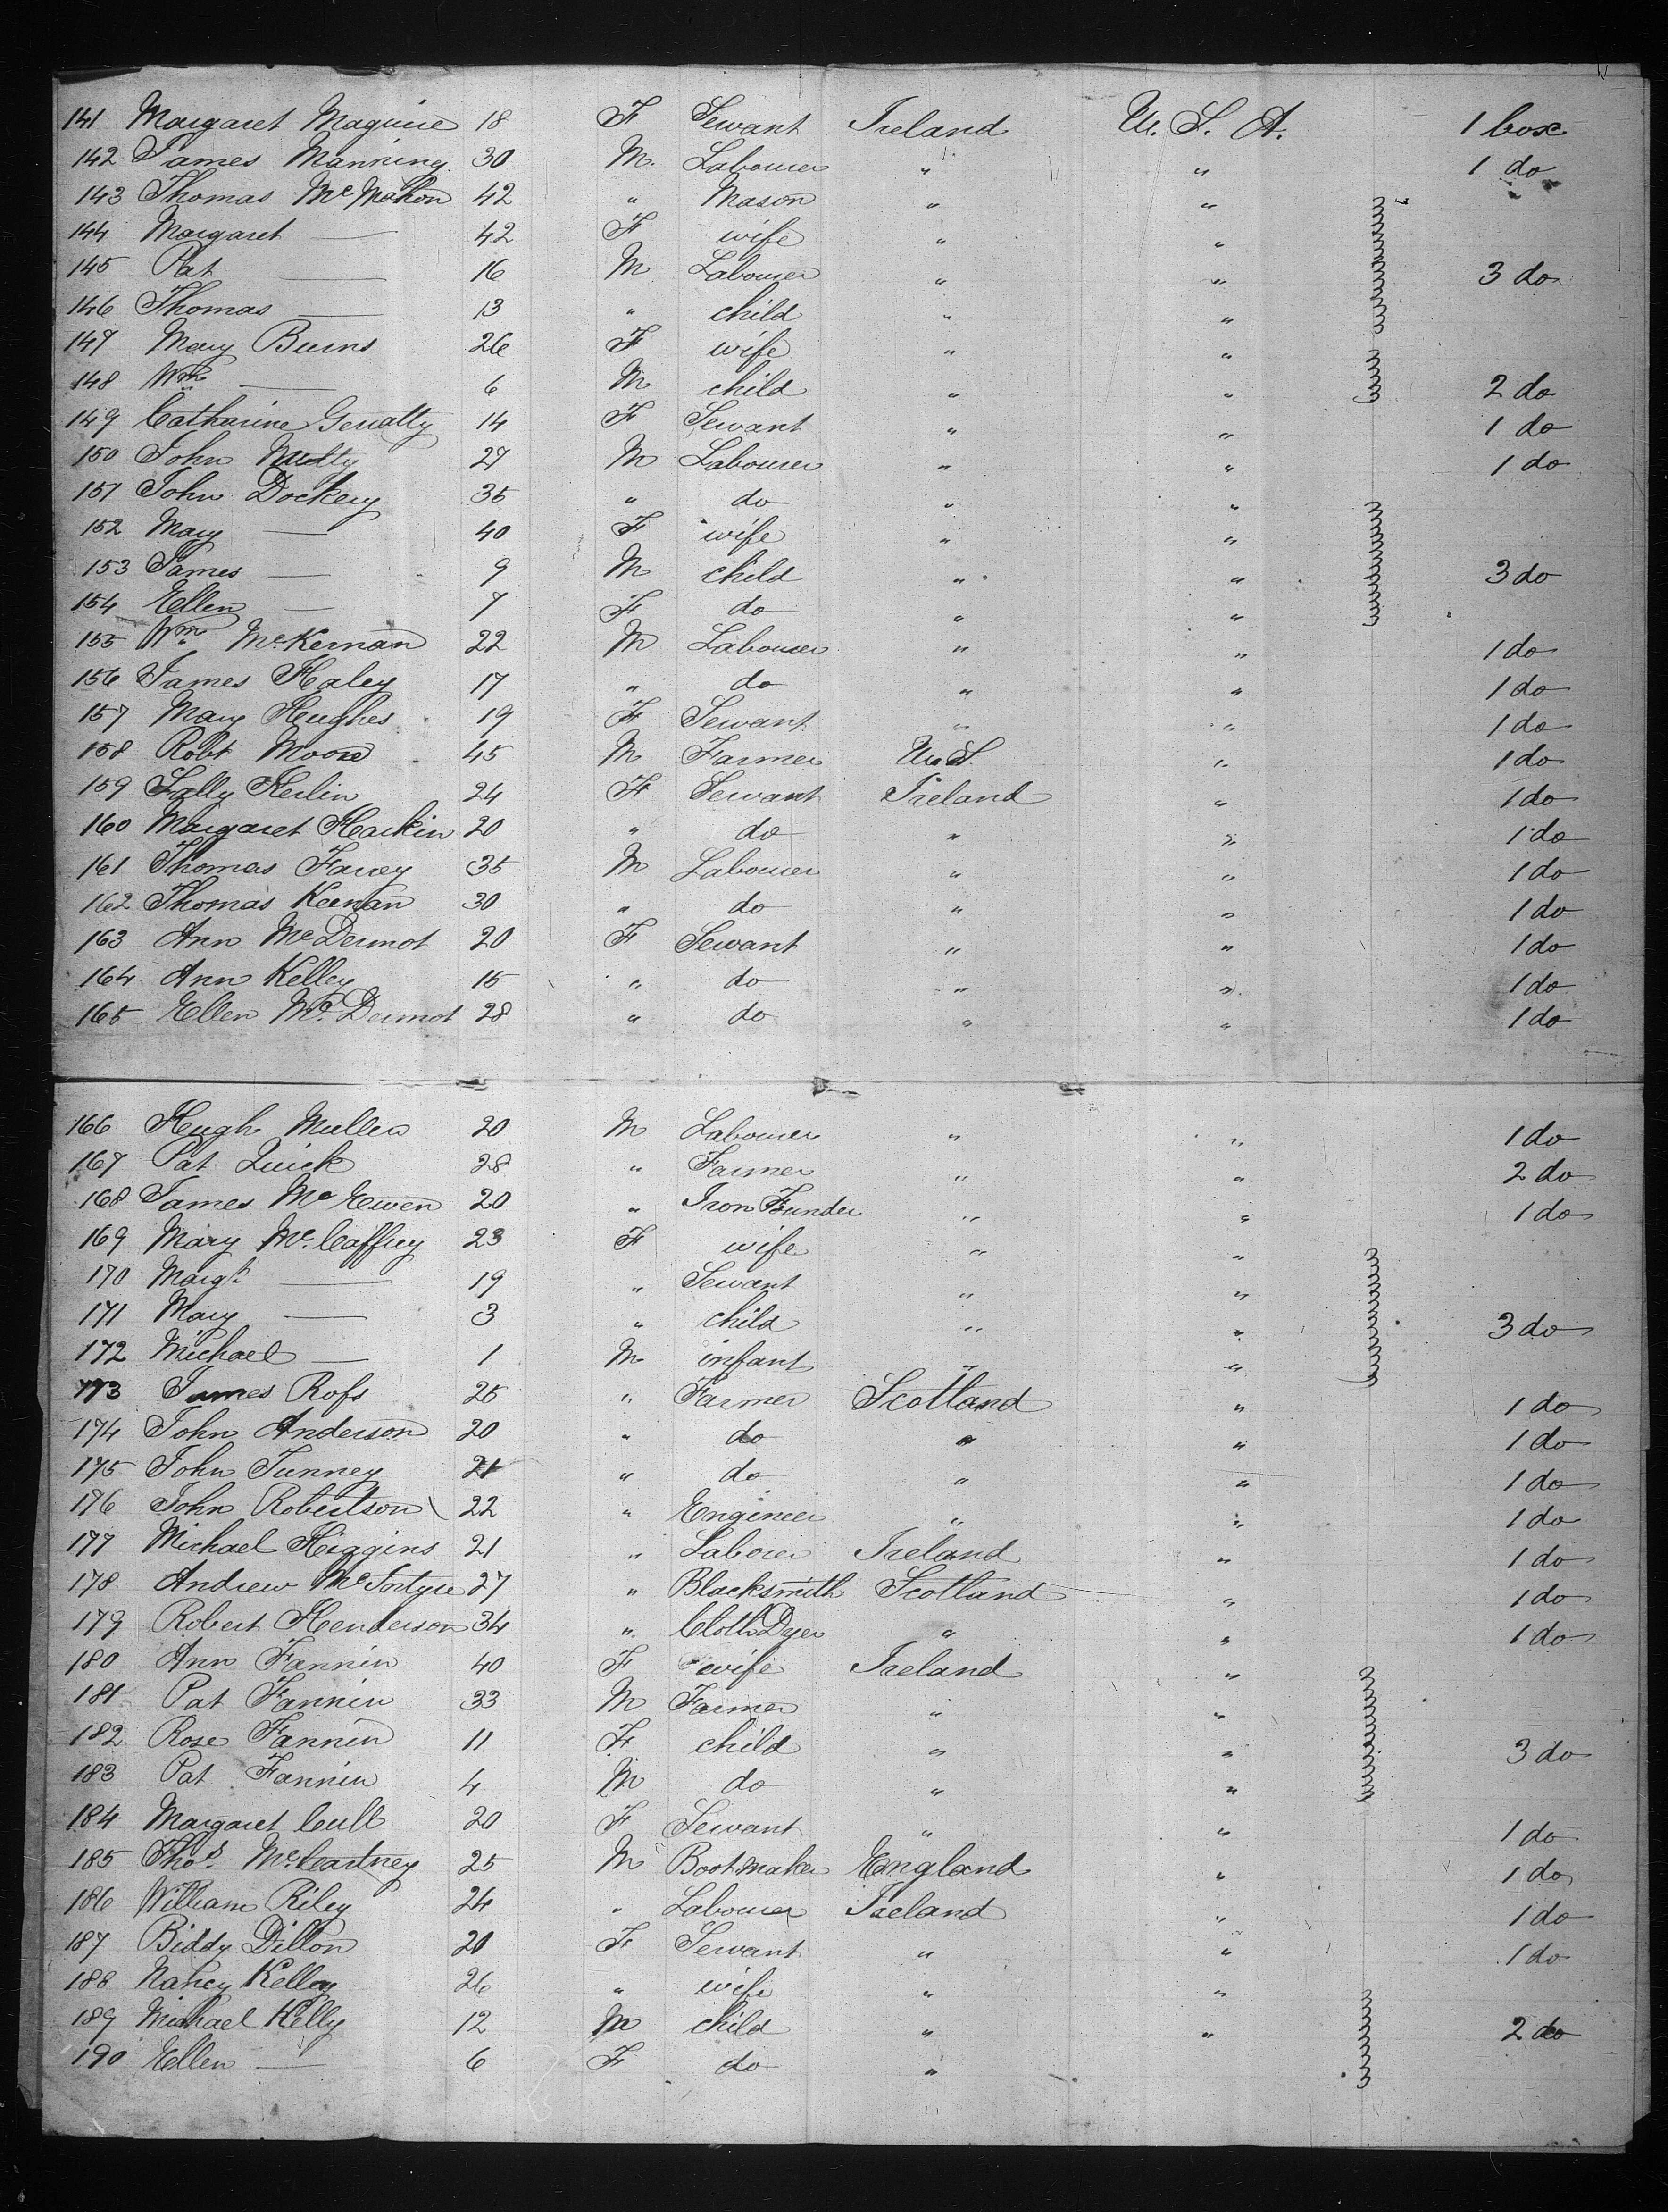 141 Margaret Maguire 18 F Servant Ireland U. S. A. 1 box
142 James Manning 30 M. Labourer " " 1 do
143 Thomas McMahon 42 " Mason " "
144 Margaret — 42 F wife " "
145 Pat — 16 M Labourer " " 3 do
146 Thomas — 13 " child " "
147 Mary Burns 26 F wife " "
148 Wm — 6 M child " " 2 do
149 Catharine Geralty 14 F Servant " " 1 do
150 John 27 M Labourer " " 1 do
151 John Dockery 35 " do " "
152 Mary — 40 F wife " "
153 James — 9 M child " " 3 do
154 Ellen — 7 F do " "
155 Wm McKernan 22 M Labourer " " 1 do
156 James Haley 17 " do " " 1 do
157 Mary Hughes 19 F Servant " " 1 do
158 Robt Moore 45 M Farmer U. S. " 1 do
159 Sally Herlin 24 F Servant Ireland " 1 do
160 Margaret Harkin 20 " do " " 1 do
161 Thomas Farrey 35 M Labourer " " 1 do
162 Thomas Keenan 30 " do " " 1 do
163 Ann McDermot 20 F Servant " " 1 do
164 Ann Kelley 15 " do " " 1 do
165 Ellen McDermot 28 " do " " 1 do
166 Hugh Mullen 20 M Labourer " " 1 do
167 Pat Quick 28 " Farmer " " 2 do
168 James McEwen 20 " Iron Founder " " 1 do
169 Mary McCaffrey 23 F wife " "
170 Margt — 19 " Servant " "
171 Mary — 3 " child " " 3 do
172 Michael — 1 M infant " "
173 James Rofs 25 " Farmer Scotland " 1 do
174 John Anderson 20 " do " " 1 do
175 John Tunney 21 " do " " 1 do
176 John Robertson 22 " Engineer " " 1 do
177 Michael Higgins 21 " Laborer Ireland " 1 do
178 Andrew McIntyre 27 " Blacksmith Scotland " 1 do
179 Robert Henderson 34 " Cloth Dyer " " 1 do
180 Ann Fannin 40 F wife Ireland "
181 Pat Fannin 33 M Farmer " "
182 Rose Fannin 11 F child " " 3 do
183 Pat Fannin 4 M do " "
184 Margaret Cull 20 F Servant " " 1 do
185 Thos McCartney 25 M Boot maker England " 1 do
186 William Riley 24 " Labourer Ireland " 1 do
187 Biddy Dillon 20 F Servant " " 1 do
188 Nancy Kelley 26 " wife " "
189 Michael Kelly 12 M child " " 2 do
190 Ellen — 6 F do "